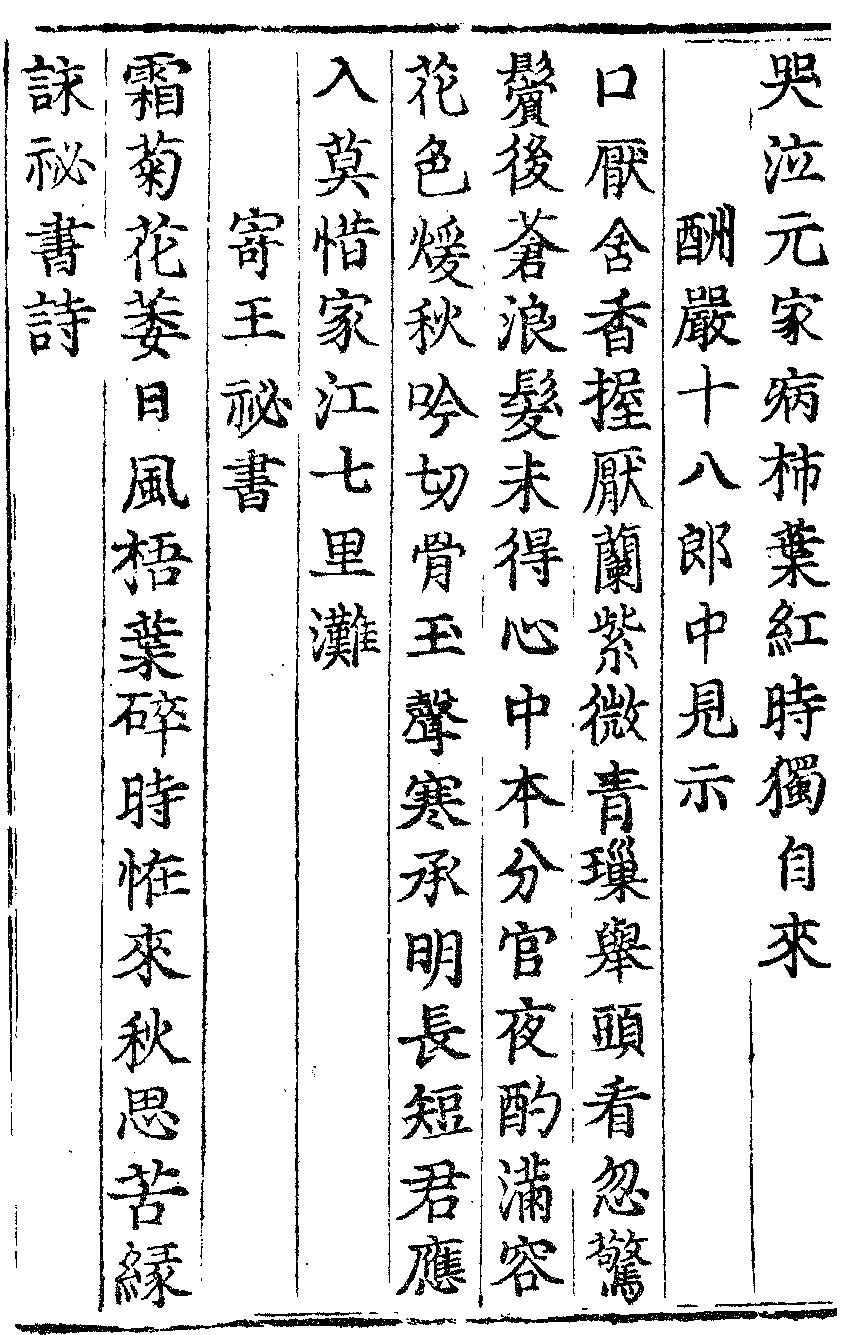 哭泣元家病柿葉紅時獨自來
酬嚴十八郎中見示
口厭舍香握厭蘭紫微青璅舉頭看忽驚
鬢後蒼浪髮未得心中本分官夜酌滿容
花色煖秋吟切骨玉聲寒承明長短君應
入莫惜家江七里灘
寄王祕書
霜菊花萎日風梧葉碎時恠來秋思苦緣
詠祕書詩